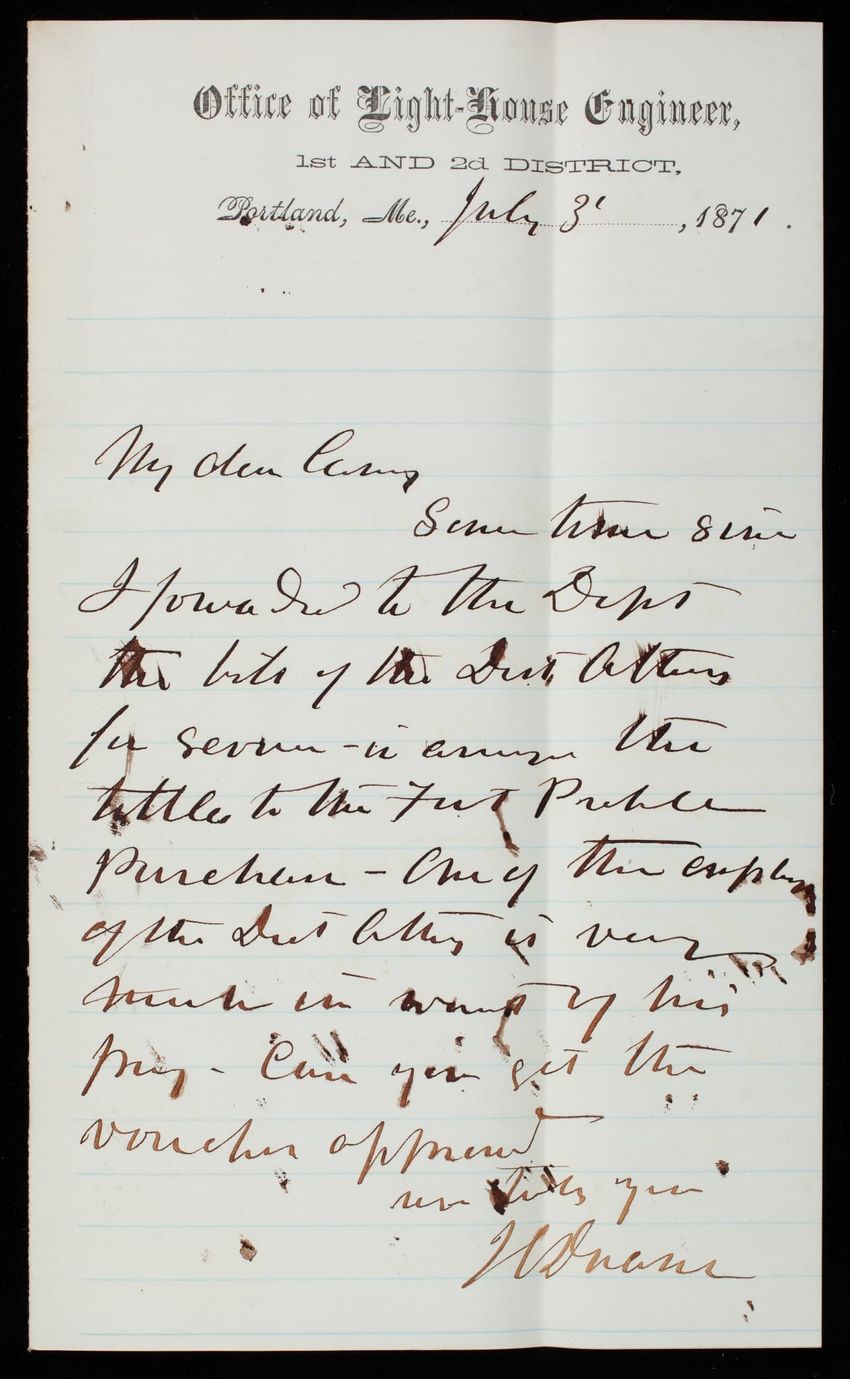 Office of Light-House Engineer,
1st AND 2d DISTRICT,
Portland, Me., July 3, 1871.
My dear Casey
Some time since
I forwarded to the Dept
the bills of the Dist. Attorney
for services in the
titles to the Fort Preble
Purchase - One of the
of the Dist Atty is very
much in want of his
pay - Can you get the
voucher approved
very truly yours
JC Duane